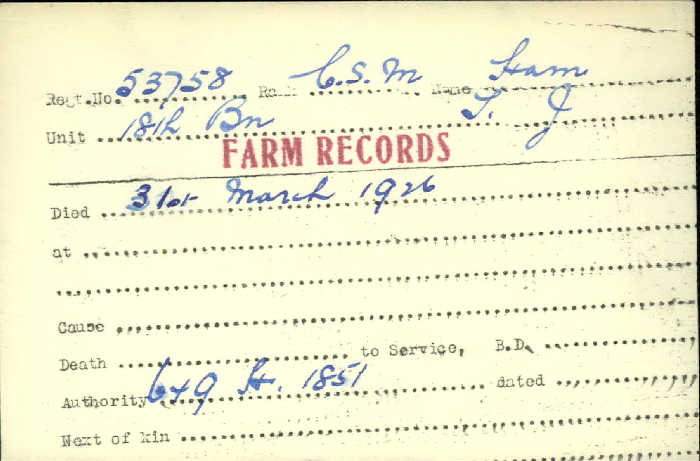 Regt.No. 53758 Rank C.S.M Name Ham
Unit 18th Bn T. J
FARM RECORDS
Died 31st March 1926
at
Cause
Death to Service, B.D.
Authority 649 H. 1851 dated
Next of kin